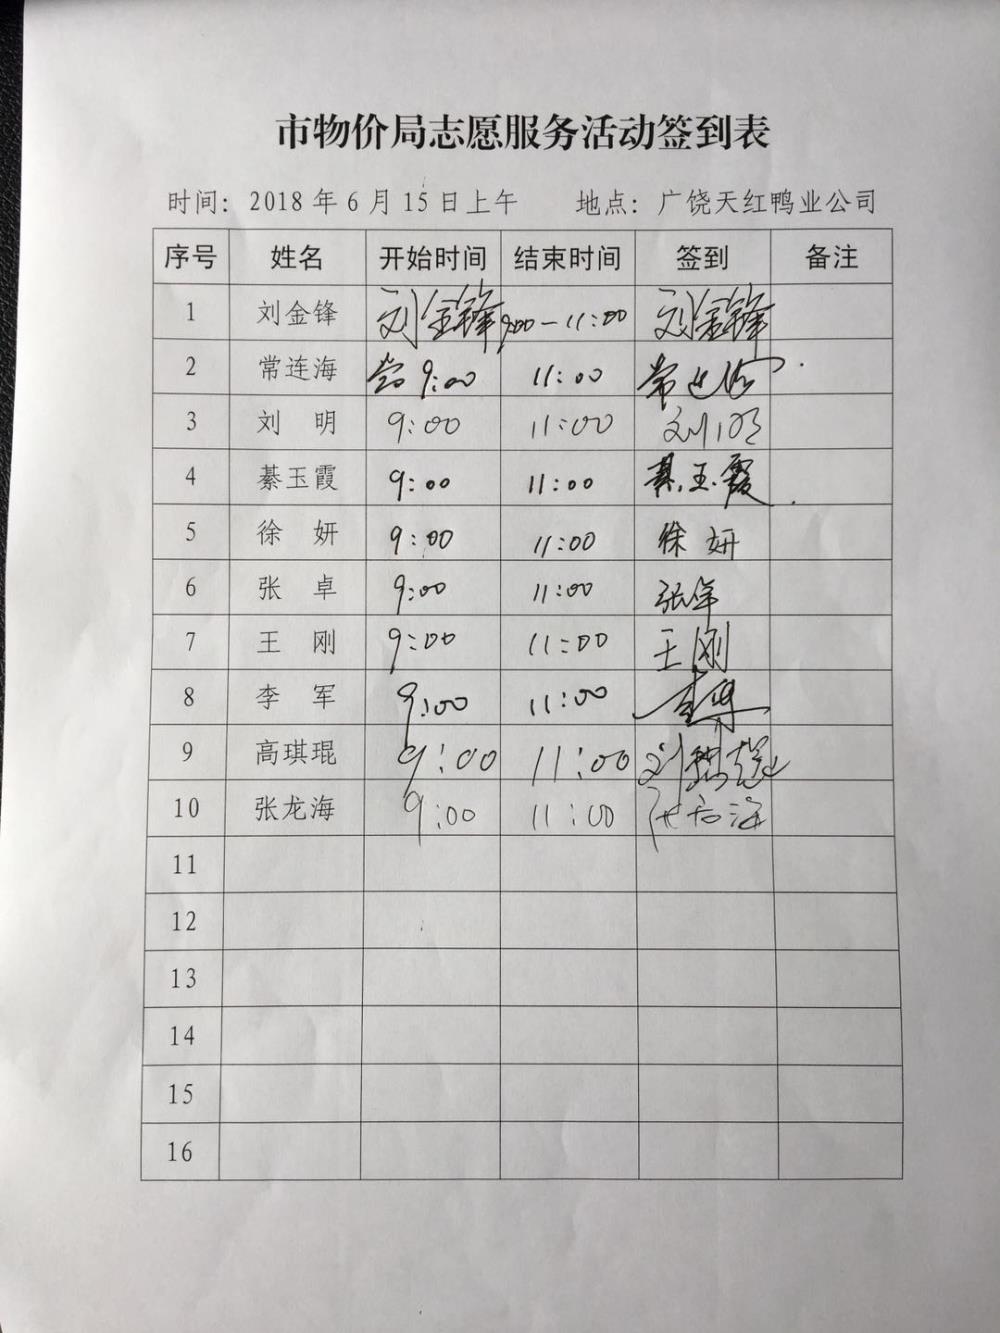 市物价局志愿服务活动签到表
时间：2018年6月15日上午 地点：广饶天红鸭业公司
序号 姓名 开始时间 结束时间 签到 备注
1 刘金锋 刘金锋 9:00—11:00 刘金锋
2 常连海 常 9:00 11:00 常连海
3 刘 明 9:00 11:00 刘明
4 綦玉霞 9:00 11:00 綦玉霞
5 徐 妍 9:00 11:00 徐妍
6 张 卓 9:00 11:00 张卓
7 王 刚 9:00 11:00 王刚
8 李 军 9:00 11:00
9 高琪琨 9:00 11:00 刘
10 张龙海 9:00 11:00 张龙海
11
12
13
14
15
16